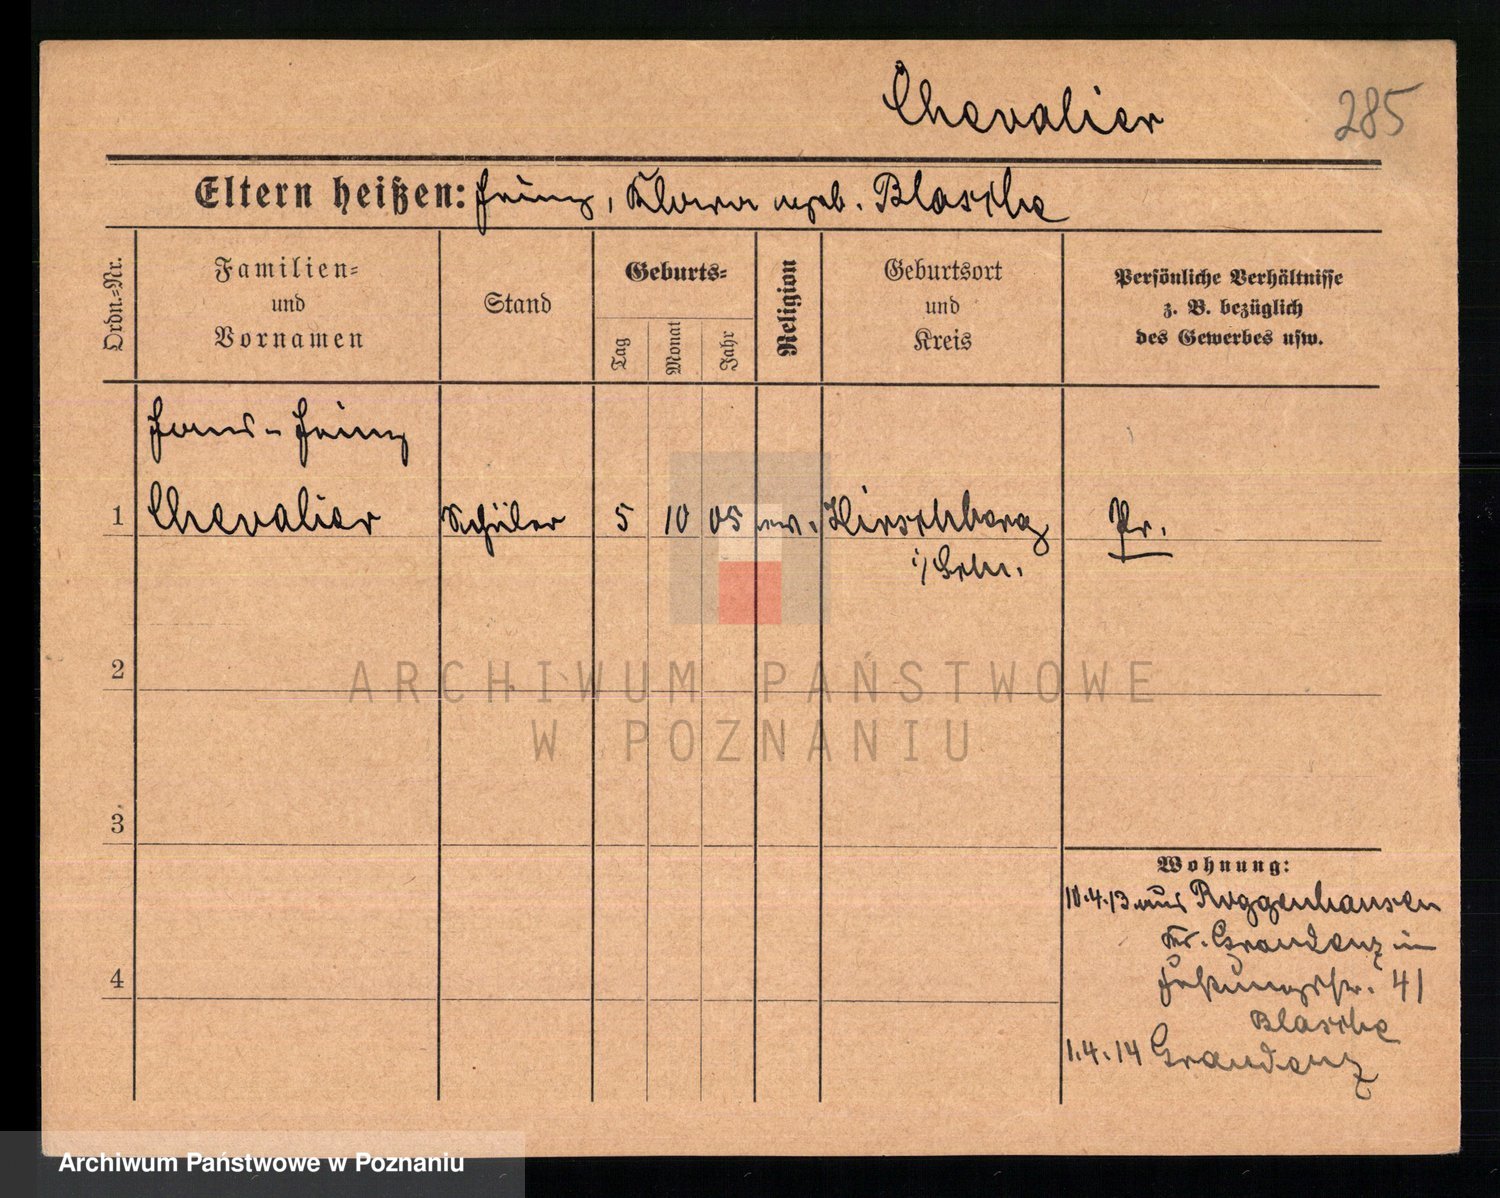 Chevalier
285
Eltern heißen: Heinz, Klara geb. Blaschke
Ordn.=Nr.
Familien=
und
Vornamen
Stand
Geburts=
Tag
Monat
Jahr
Religion
Geburtsort
und
Kreis
Persönliche Verhältnisse
z. B. bezüglich
des Gewerbes usw.
Hans - Heinz
1 Chevalier Schüler 5 10 05 ev. Hirschberg Pr.
i/Schl.
2
ARCHIWUM PAŃSTWOWE
W POZNANIU
3
Wohnung:
10.4.13 aus Roggenhausen
Kr. Graudenz in
Festungsstr. 41
4
Blaschke
1.4.14 Graudenz
Archiwum Państwowe w Poznaniu